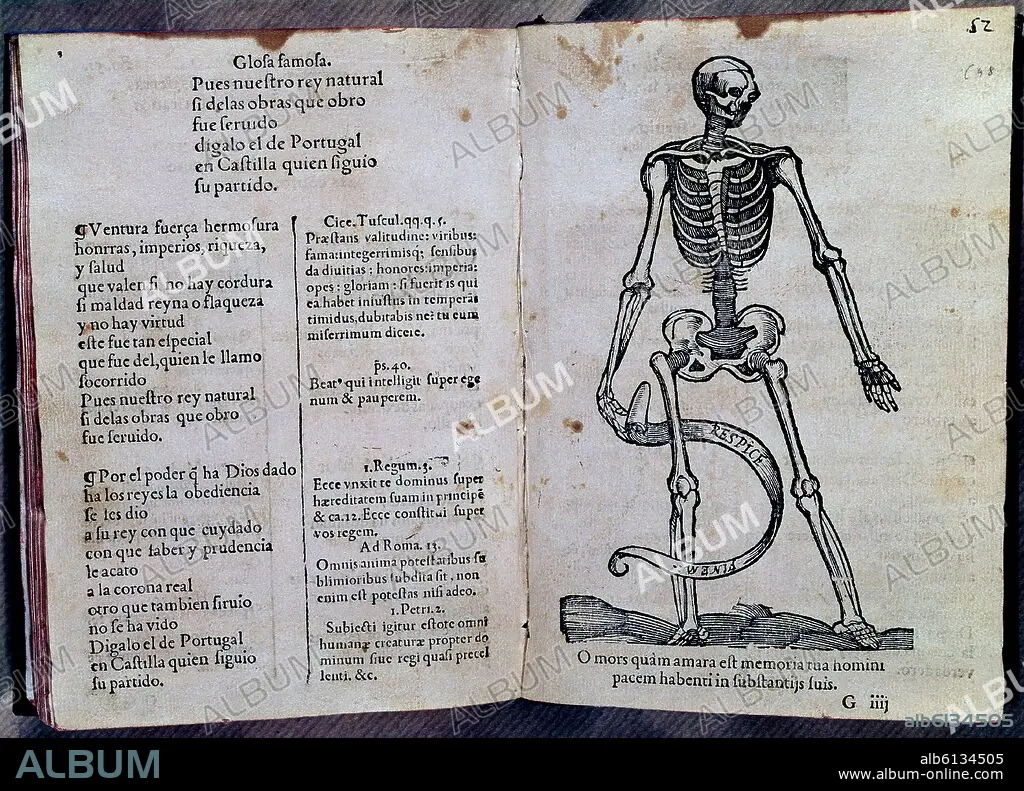 Glosa famosa.
Pues nuestro rey natural
si delas obras que obro
fue seruido
digalo el de Portugal
en Castilla quien siguio
su partido.
¶Ventura fuerça hermosura
honrras, imperios, riqueza,
y salud
que valen si no hay cordura
si maldad reyna o flaqueza
y no hay virtud
este fue tan especial
que fue del, quien le llamo
socorrido
Pues nuestro rey natural
si delas obras que obro
fue seruido.
¶Por el poder q̃ ha Dios dado
ha los reyes la obediencia
se les dio
a su rey con que cuydado
con que saber y prudencia
le acato
a la corona real
otro que tambien siruio
no se ha vido
Digalo el de Portugal
en Castilla quien siguio
su partido.
Cice. Tuscul. qq. q. 5.
Præstans valitudine: viribus:
fama: integerrimisq; sensibus
da diuitias: honores: imperia:
opes: gloriam: si fuerit is qui
ea habet iniustus in temperãs
timidus, dubitabis ne: tu eum
miserrimum dicere.
p̄s. 40.
Beatꝰ qui intelligit super ege
num & pauperem.
1. Regum. 9.
Ecce vnxit te dominus super
hæreditatem suam in principẽ
& ca. 12. Ecce constitui super
vos regem.
Ad Roma. 13.
Omnis anima potestatibus su
blimioribus subdita sit, non
enim est potestas nisi adeo.
1. Petri. 2.
Subiecti igitur estote omni
humanæ creaturæ propter do
minum siue regi quasi precel
lenti. &c.
52
RESPICE
O mors quàm amara est memoria tua homini
pacem habenti in substantijs suis.
G iiij
ALBUM
alb6134505
ALBUM
alb6134505
www.album-online.com